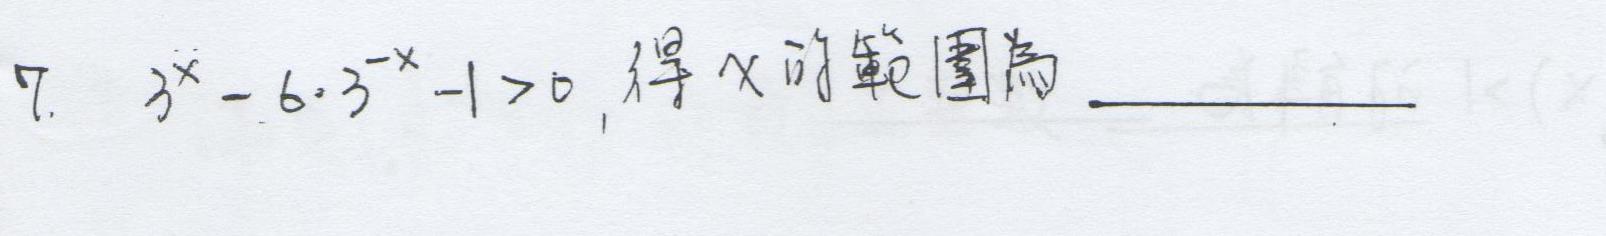 7. 3^x - 6·3^{-x} - 1 > 0, 得 x 的範圍為 ________